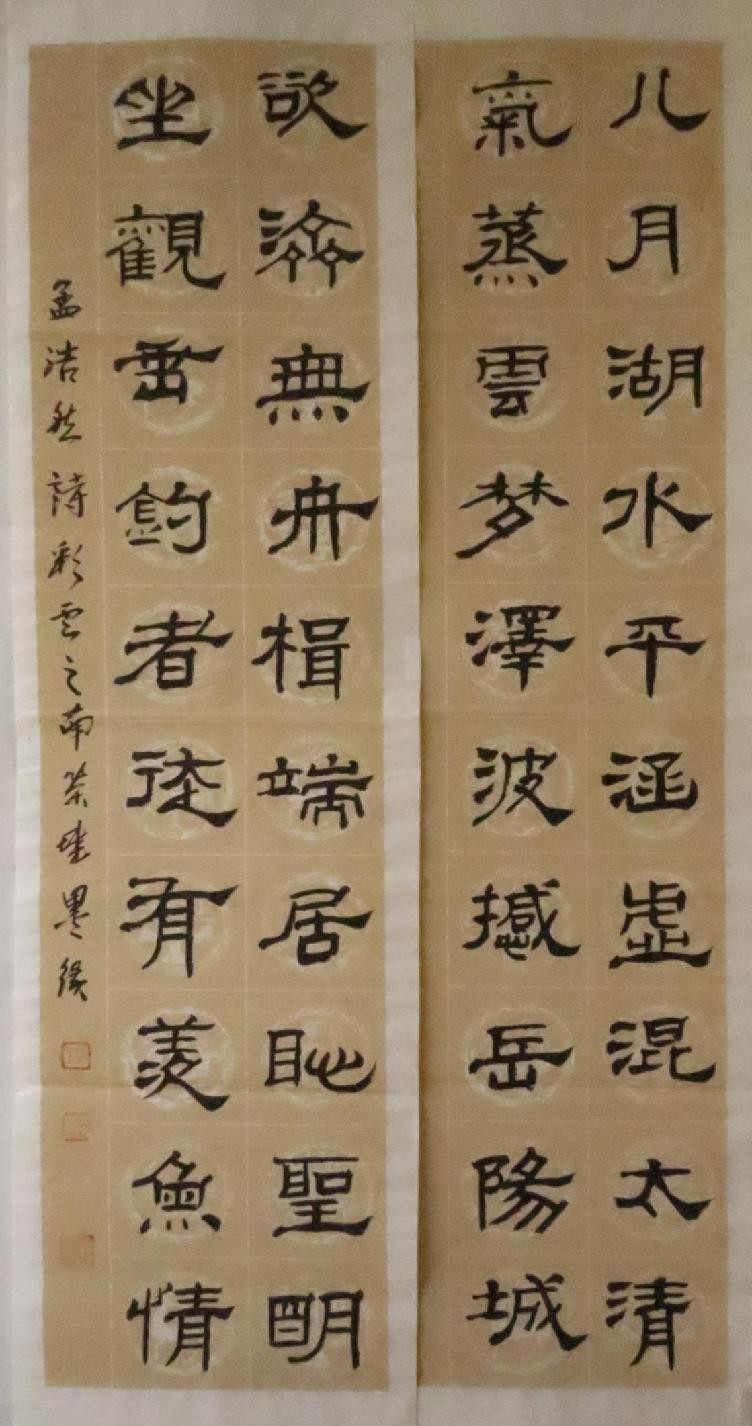 八月湖水平涵虛混太清
氣蒸雲梦澤波撼岳陽城
欲濟無舟楫端居恥聖明
坐觀垂釣者徒有羨魚情
孟浩然詩彩雲之南墨緣